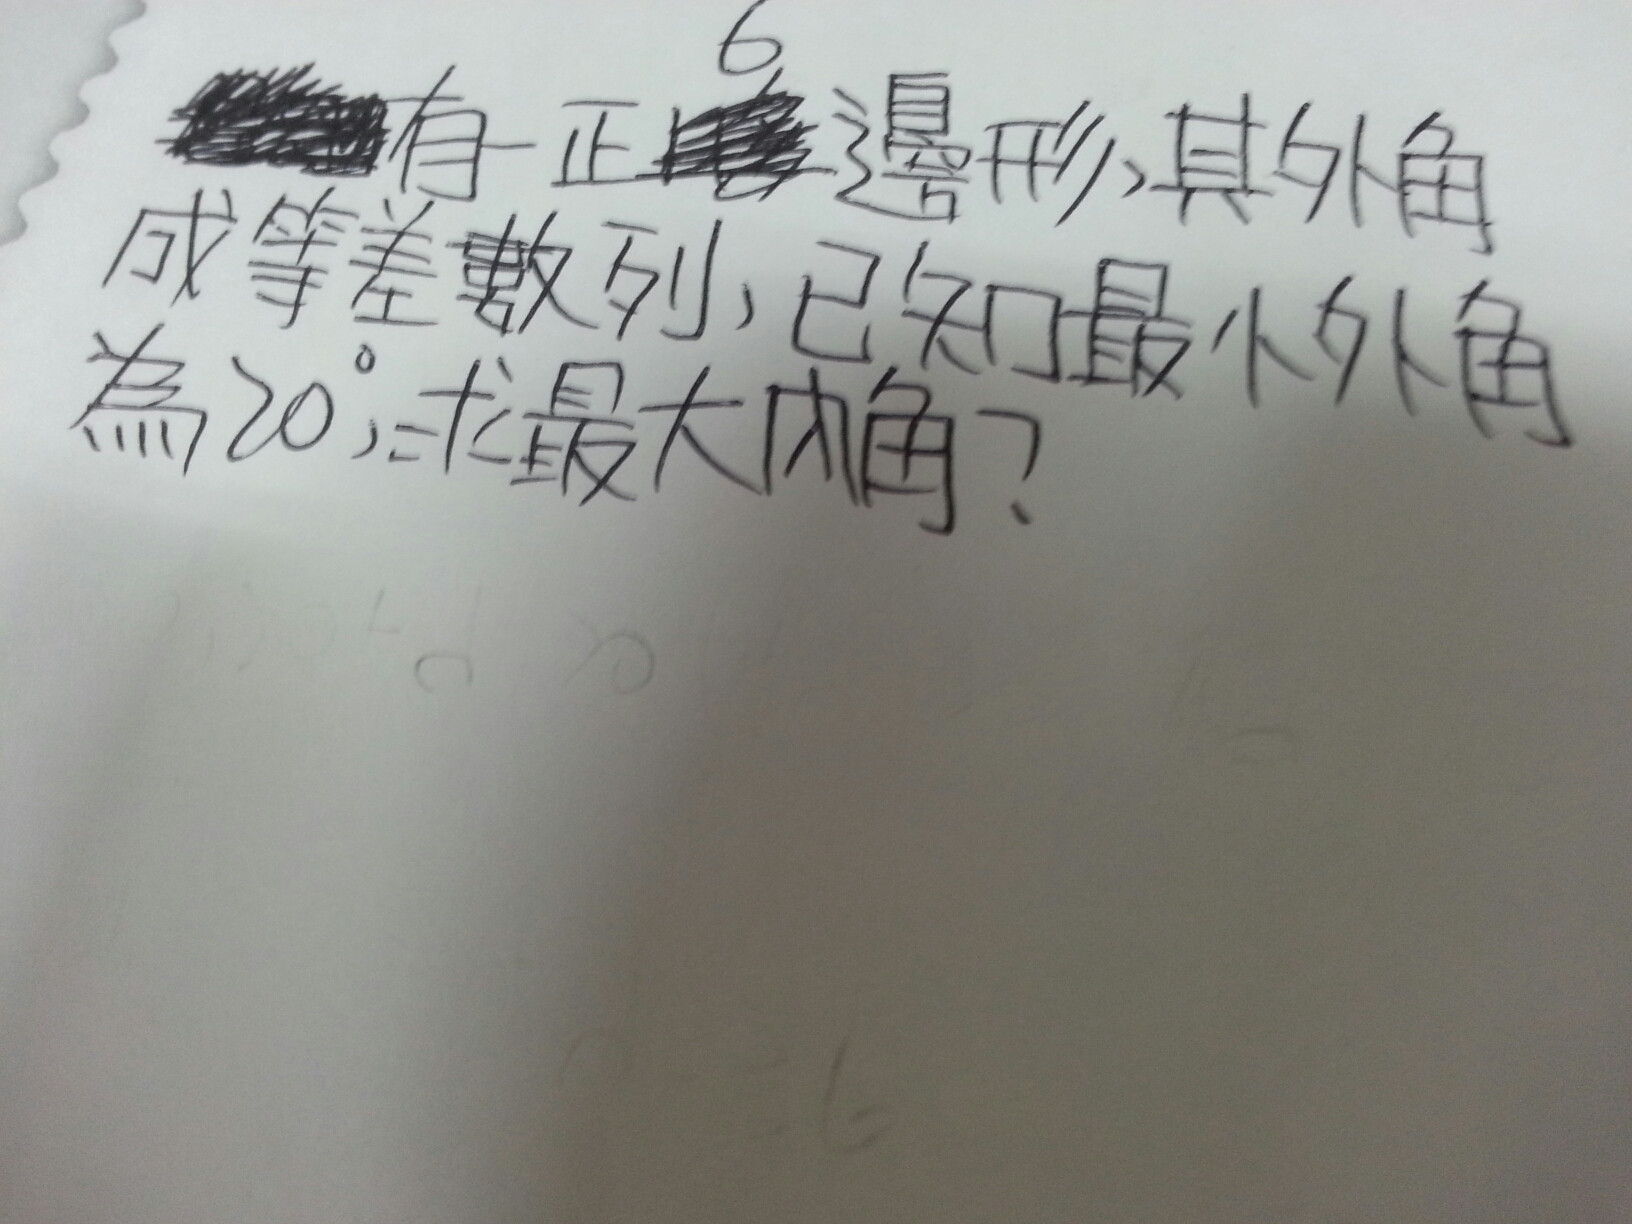 有一正6邊形,其外角
成等差數列,已知最小外角
為20°,求最大內角?